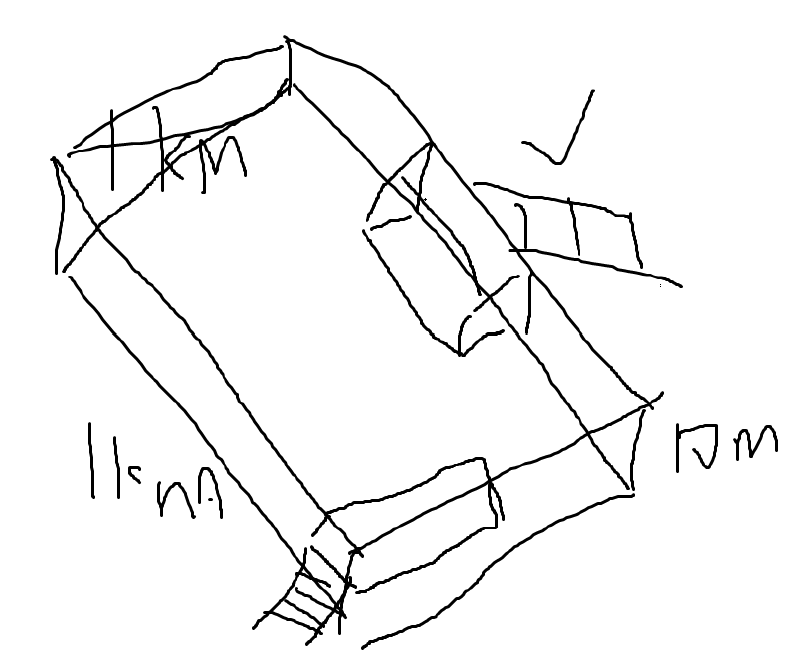 1 km
1 km
10 m